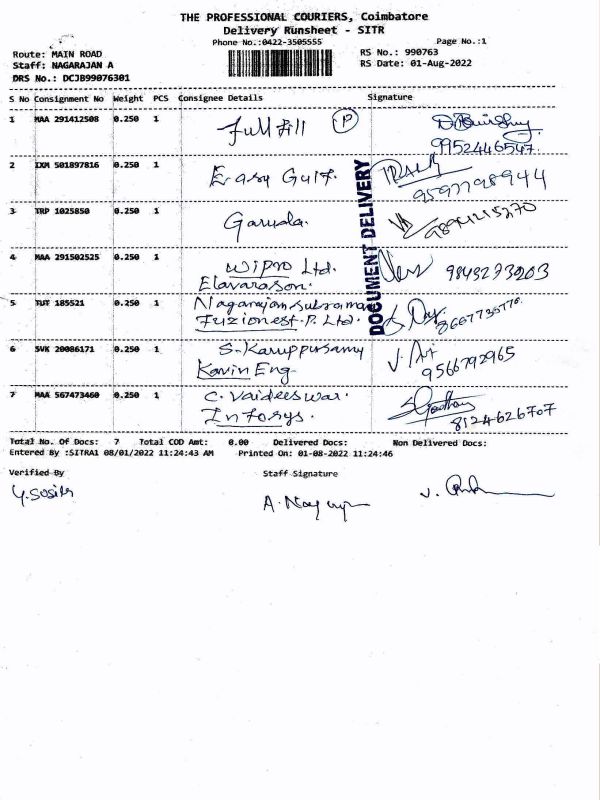 THE PROFESSIONAL COURIERS, Coimbatore
Delivery Runsheet - SITR
Phone No.:0422-3505555 Page No.:1
Route: MAIN ROAD RS No.: 990763
Staff: NAGARAJAN A RS Date: 01-Aug-2022
DRS No.: DCJB99076301
S No Consignment No Weight PCS Consignee Details Signature
1 MAA 291412508 0.250 1 Fullfill P
9952446547.
2 IXM 501897816 0.250 1 Easy Gulf.
9597798944
3 TRP 1025850 0.250 1 Garuda.
9894215270
4 MAA 291502525 0.250 1 Wipro Ltd.
Elavarason. 9843273203
5 TUT 185521 0.250 1 Nagarajan Subraman
Fuzionest. P. Ltd. 8667735776.
DOCUMENT DELIVERY
6 SVK 20086171 0.250 1 S. Karuppusamy
Kavin Eng 9566792965
7 MAA 567473460 0.250 1 C. Vaideeswar.
Infosys. 8124626707
Total No. Of Docs: 7 Total COD Amt: 0.00 Delivered Docs: Non Delivered Docs:
Entered By :SITRA1 08/01/2022 11:24:43 AM Printed On: 01-08-2022 11:24:46
Verified By Staff Signature